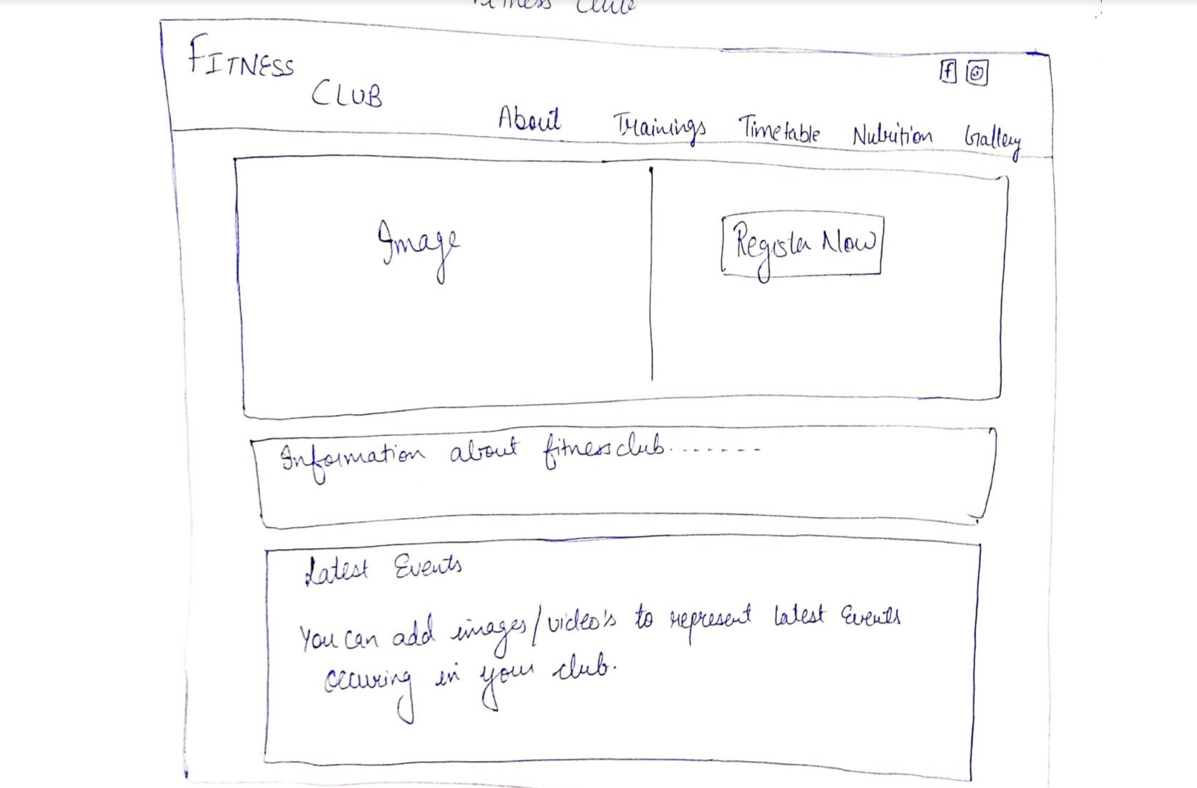 Fitness Club
FITNESS
CLUB
f
About Trainings Timetable Nutrition Gallery
Image
Register Now
Information about fitness club.......
Latest Events
You can add images/video's to represent latest Events
occuring in your club.